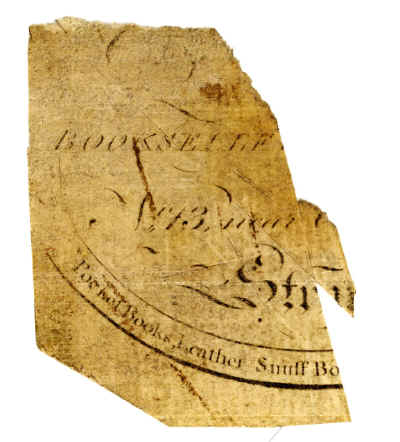 BOOKSELLE
No. 43, near
Stran
Pocket Books, Leather Snuff Bo